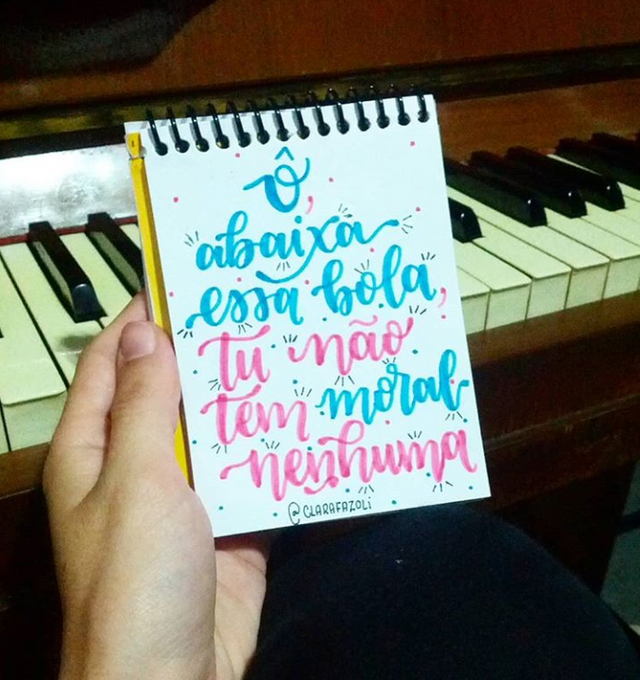 Ô,
abaixa
essa bola,
tu não
tem moral
nenhuma
@CLARAFAZOLI